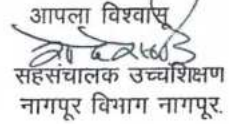 आपला विश्वासू
सहसंचालक उच्चशिक्षण
नागपूर विभाग नागपूर.